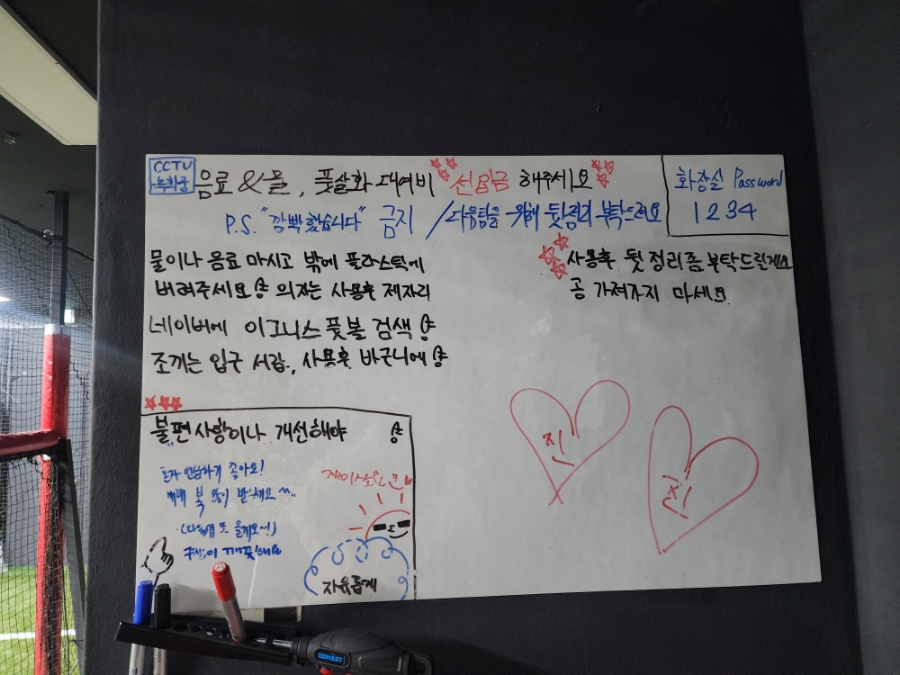 CCTV
녹화중
음료 & 물, 풋살화 대여비 선입금 해주세요
화장실 Password
1234
P.S. "깜빡했습니다" 금지 / 다음팀을 위해 뒷정리 부탁드려요
물이나 음료 마시고 밖에 플라스틱에
버려주세요 의자는 사용후 제자리
네이버에 이그니스 풋볼 검색
조끼는 입구 서랍, 사용후 바구니에
사용후 뒷정리좀 부탁드릴게요
공 가져가지 마세요
불편사항이나 개선해야
혼자 연습하기 좋아요!
새해 복 많이 받으세요~
(다음에 또 올게요~!)
자유롭게
BOMÄST